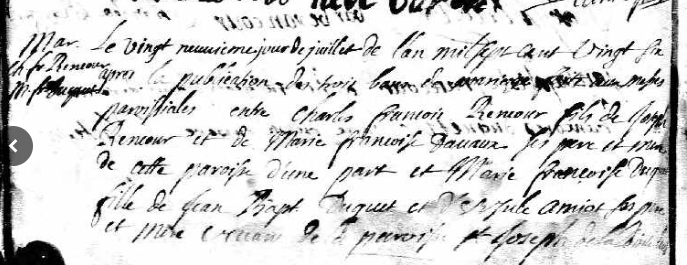 Mar. Le vingt neuvieme jour de juillet de lan mil sept cent vingt six
ch fr Rencour apres la publication des trois bans de mariage faite aux messes
M. fr Duquet parroissiales entre Charles francois Rencour fils de Joseph
Rencour et de Marie francoise Davaux ses pere et mere
de cette paroisse d'une part et Marie francoise Duquet
fille de Jean Bapt. Duquet et D'ursule amiot ses pere
et mere de la paroisse St Joseph de la